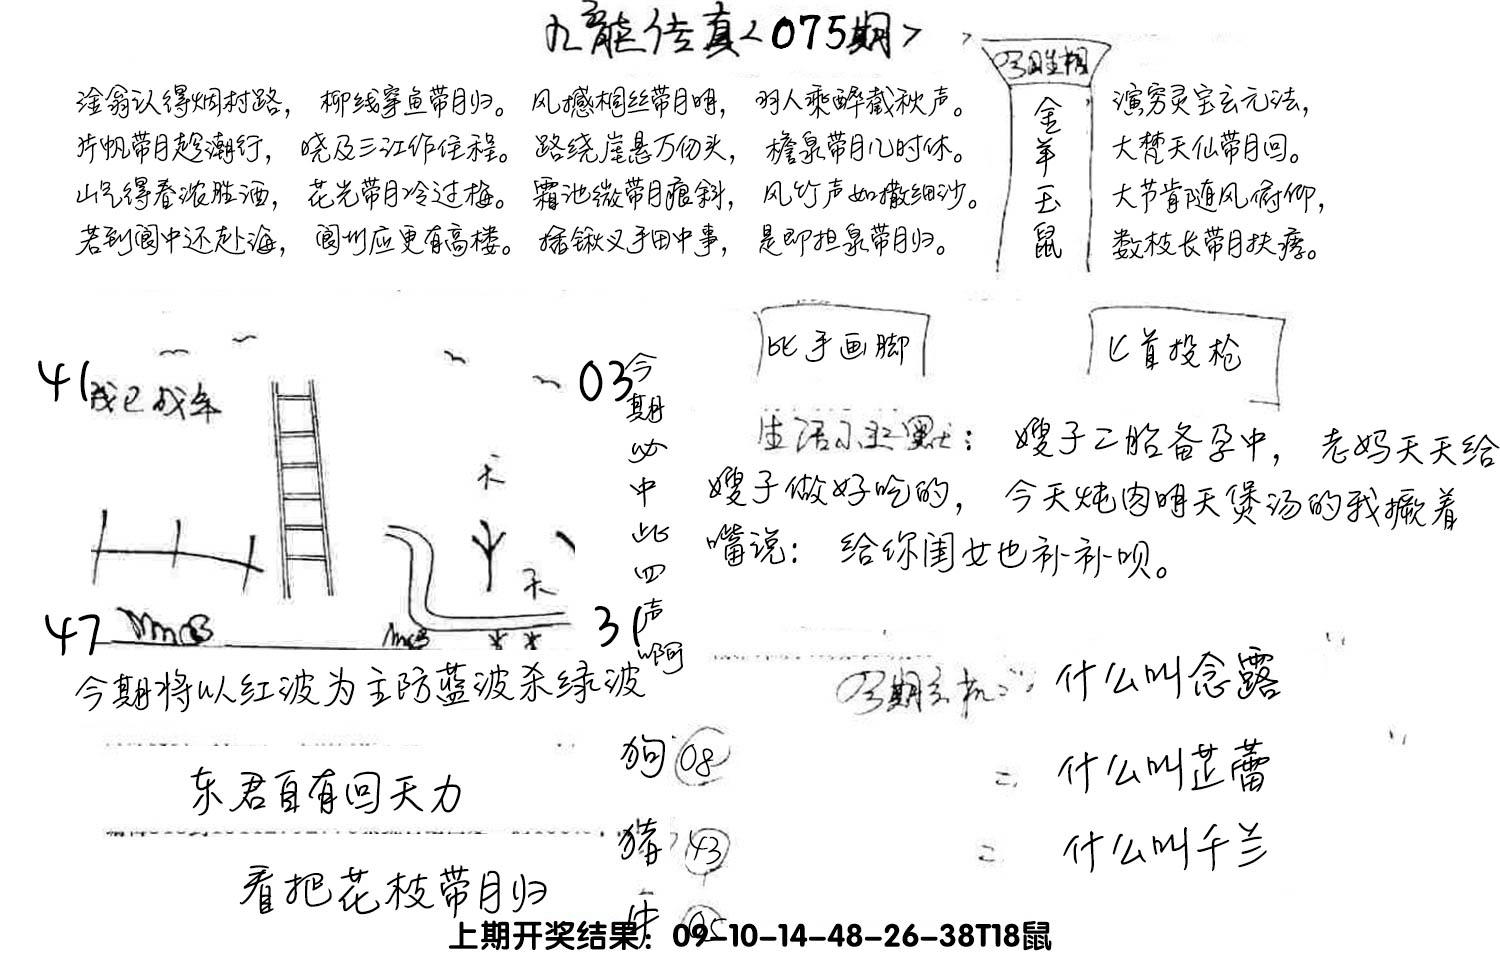 九龙传真<075期>
渔翁认得烟村路， 柳线穿鱼带月归。 风撼桐丝带月明， 羽人乘醉截秋声。
片帆带月趁潮行， 晓及三江作住程。 路绕崖悬万仞头， 檐泉带月几时休。
山气得春浓胜酒， 花光带月冷过梅。 霜池微带月痕斜， 风竹声如撒细沙。
若到阆中还赴海， 阆州应更有高楼。 插锹叉手田中事， 是即担泉带月归。
金羊玉鼠
演穷灵宝玄元法，
大梵天仙带月回。
大节肯随风俯仰，
数枝长带月扶疏。
41
03
47
31
今期必中此四声啊
天
天
今期将以红波为主防蓝波杀绿波
比手画脚
匕首投枪
生活小幽默： 嫂子二胎备孕中， 老妈天天给
嫂子做好吃的， 今天炖肉明天煲汤的我撅着
嘴说： 给你闺女也补补呗。
什么叫念露
二 什么叫芷蕾
二 什么叫千兰
东君自有回天力
看把花枝带月归
狗 08
猪 43
牛 05
上期开奖结果：09-10-14-48-26-38T18鼠